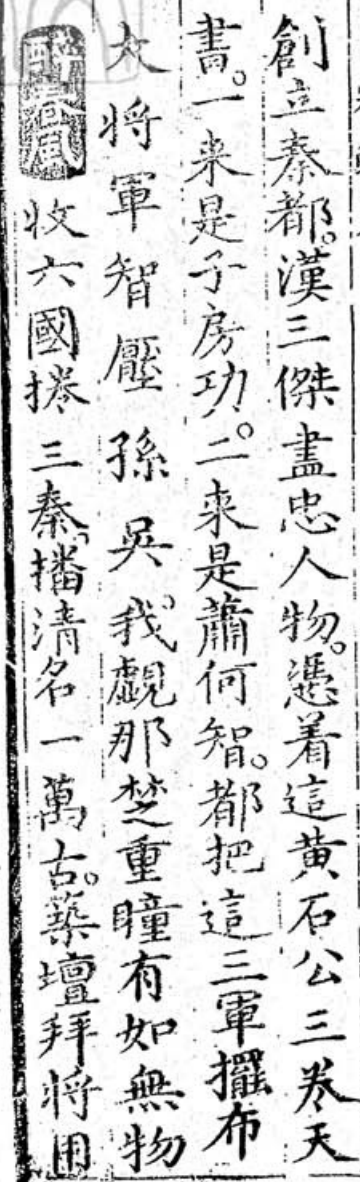 創立秦都。漢三傑盡忠人物。憑着這黄石公三卷天
書。一来是子房功。二来是蕭何智。都把這三軍擺布
大将軍智壓孫吳。我覷那楚重瞳有如無物
醉春風 收六國捲三秦、播清名一萬古。築壇拜将用